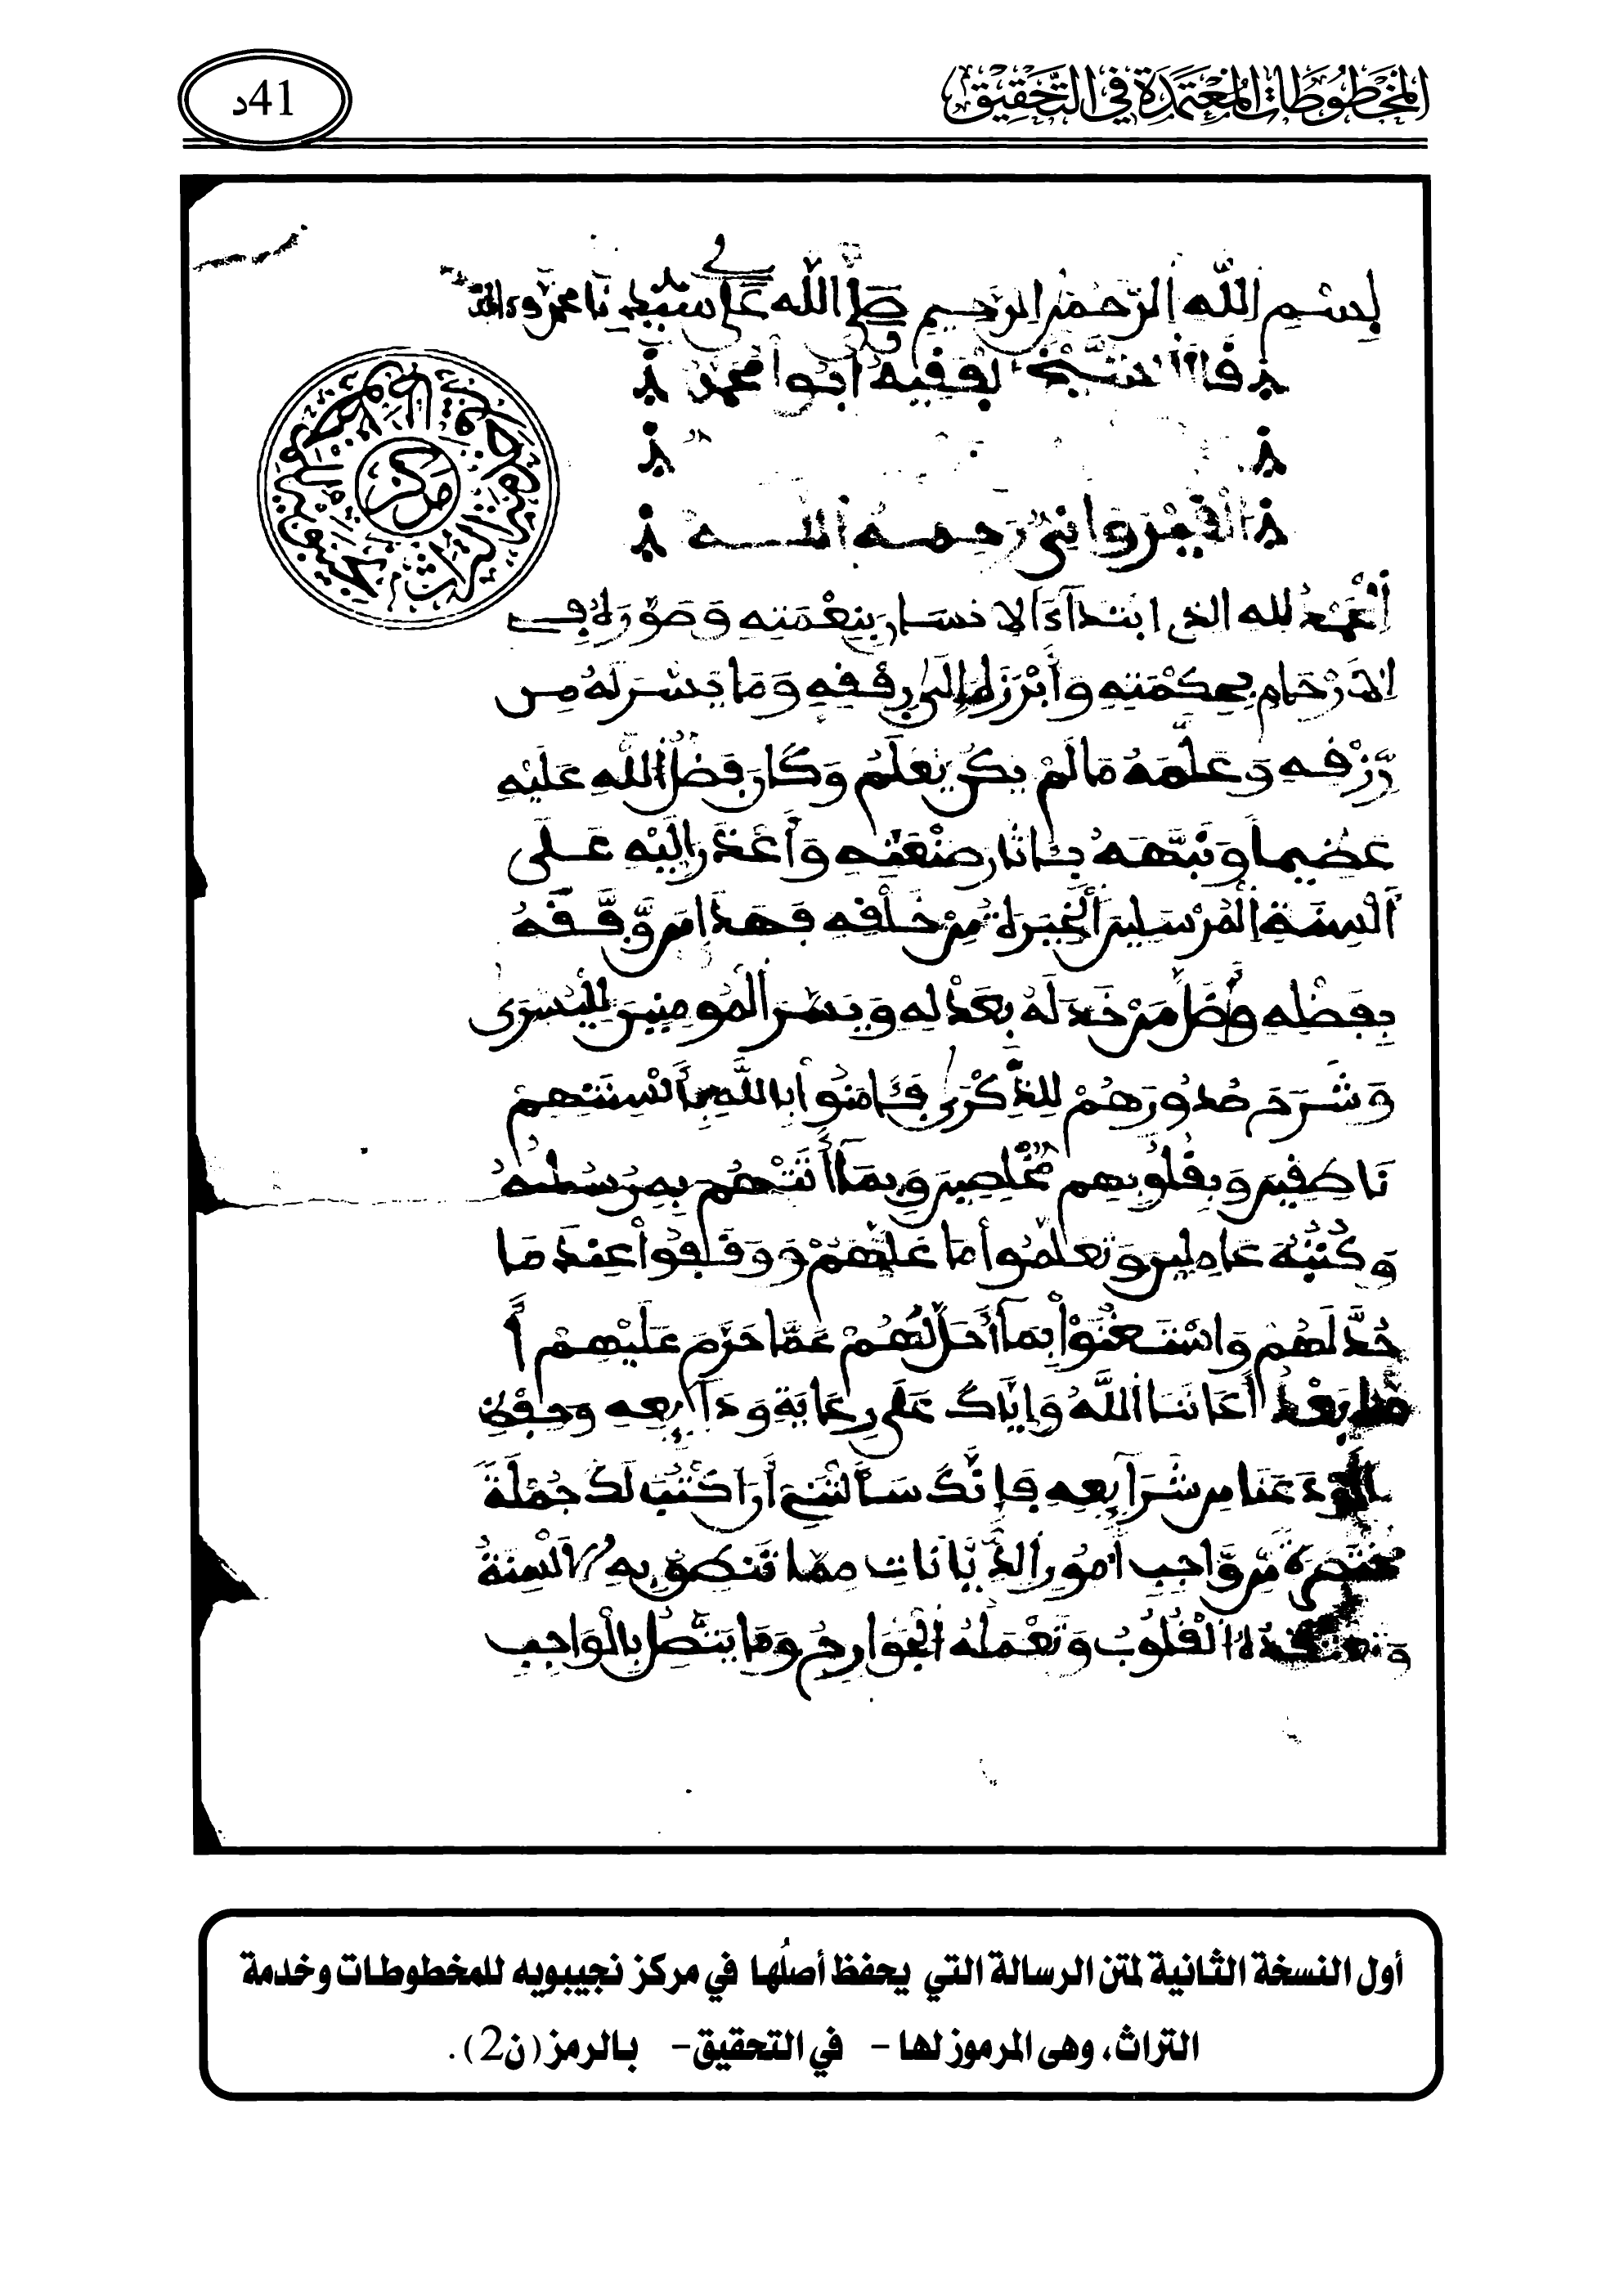 المخطوطات المعتمدة في التحقيق
41د
بِسْمِ اللَّه الرَّحْمٰن الرَّحِيم صَلَّى اللَّه عَلَى سَيِّدِنَا مُحَمَّد وءاله
قال الشَّيْخ الفقيه ابوا محمد
القيرواني رحمه الله
اَلْحَمْدُ لله الذي ابتدآءَ الانسان بِنِعْمَتِه وَصَوَّرَهُ فِي
الاَرْحَامِ بِحِكْمَتِهِ وَأَبْرَزَهُ إِلَى رِفْقِهِ وَمَا يَسَّرَ لَهُ مِن
رِّزْقِه وَعَلَّمَهُ مَا لَمْ يَكُن يَعْلَمُ وَكَانَ فَضْلُ اللَّهِ عَلَيْهِ
عَضِيماً وَنَبَّهَهُ بِـَٔاثَارِ صَنْعَتِه وَأَعْذَرَ إِلَيْه عَلَى
اَلْسِنَةِ الْمُرْسَلِينَ الْخِيَرَةِ مِنْ خَلْقِه فَهَذَا مَن وَّفَّقَهُ
بِفَضْلِه وَأَضَلَّ مَنْ خَذَلَهُ بِعَدْلِه وَيَسَّرَ الْمُومِنِينَ لِلْيُسْرَى
وَشَرَحَ صُدُورَهُمْ لِلذِّكْرَى فَـَٔامَنُوا بِاللَّهِ بِأَلْسِنَتِهِمْ
نَاطِقِينَ وَبِقُلُوبِهِم مُخْلِصِينَ وَبِمَآ أَتَتْهُم بِهِ رُسُلُهُ
وَكُتُبُهُ عَامِلِينَ وَتَعَلَّمُوا مَا عَلَّمَهُمْ وَوَقَفُوا عِندَ مَا
حُدَّ لَهُمْ وَاسْتَغْنَوْا بِمَآ أَحَلَّ لَهُمْ عَمَّا حَرَّمَ عَلَيْهِمْ أَ
مَّا بَعْدُ أَعَانَنَا اللَّهُ وَإِيَّاكَ عَلَى رِعَايَةِ وَدَآئِعِه وَحِفْظِ
مَا أَوْدَعَنَا مِن شَرَآئِعِه فَإِنَّكَ سَأَلْتَنِي أَنَ اكْتُبَ لَكَ جُمْلَةً
مُخْتَصَرَةً مِّن وَّاجِبِ أُمُورِ الدِّيَانَاتِ مِمَّا تَنطِقُ بِهِ اَلْسِنَةُ
وَتَعْتَقِدُهُ الْقُلُوبُ وَتَعْمَلُهُ الْجَوَارِحُ وَمَا يَتَّصِلُ بِالْوَاجِبِ
مركز
أول النسخة الثانية لمتن الرسالة التي يحفظ أصلُها في مركز نجيبويه للمخطوطات وخدمة
التراث، وهى المرموز لها - في التحقيق - بالرمز (ن2).